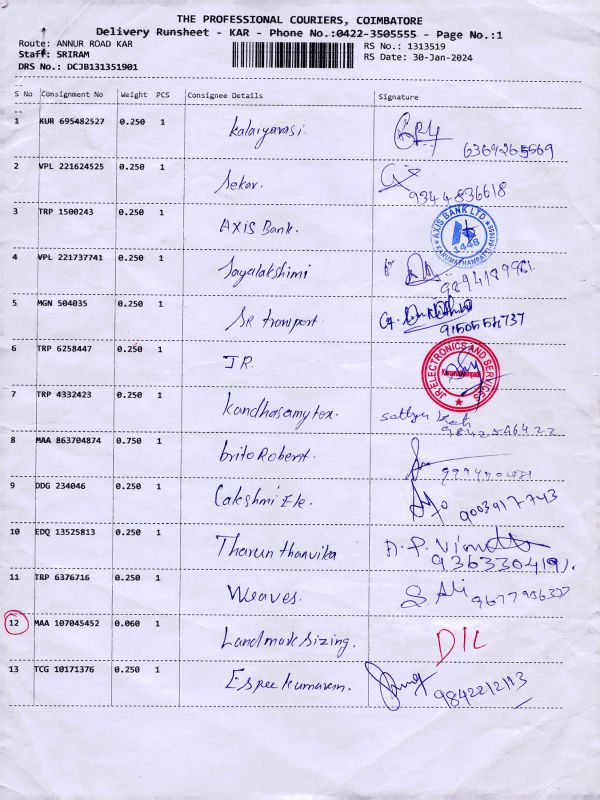 THE PROFESSIONAL COURIERS, COIMBATORE
Delivery Runsheet - KAR - Phone No.:0422-3505555 - Page No.:1
Route: ANNUR ROAD KAR RS No.: 1313519
Staff: SRIRAM RS Date: 30-Jan-2024
DRS No.: DCJB131351901
S No Consignment No Weight PCS Consignee Details Signature
1 KUR 695482527 0.250 1 Kalaiyarasi
2 VPL 221624525 0.250 1 Sekar. 9344836618
3 TRP 1500243 0.250 1 AXIS Bank. AXIS BANK LTD. 1448
4 VPL 221737741 0.250 1 Jayalakshimi for
5 MGN 504035 0.250 1 SR transport
6 TRP 6258447 0.250 1 JR. JR ELECTRONICS AND SERVICES
7 TRP 4332423 0.250 1 Kandhasamy tex.
8 MAA 863704874 0.750 1 brito Robert.
9 DDG 234046 0.250 1 Lakshmi Ele. 9003917743
10 EDQ 13525813 0.250 1 Tharun thanvika
11 TRP 6376716 0.250 1 Weaves.
12 MAA 107045452 0.060 1 Landmark sizing. DIL
13 TCG 10171376 0.250 1 9842212113